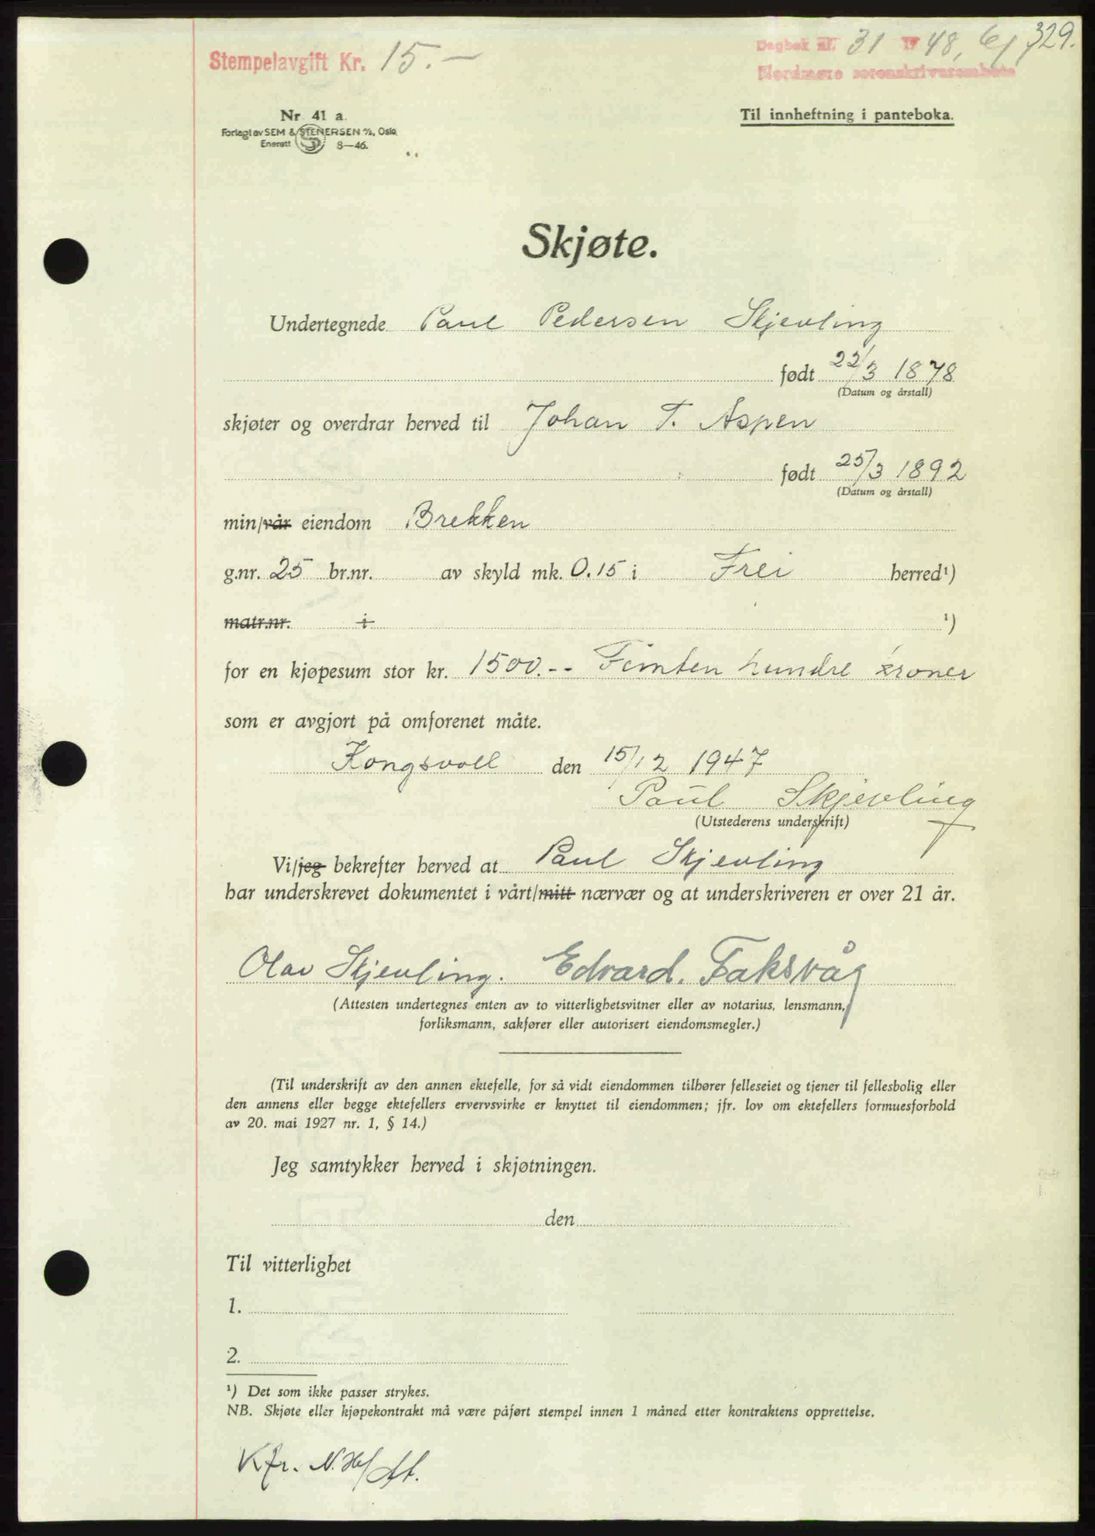 Stempelavgift Kr. 15.—
Dagbok nr. 31 1948, 6/1 329.
Nordmøre sorenskriverembete
Nr 41 a.
Forlagt av SEM & STENERSEN A/S, Oslo
Enerett 8—46.
Til innheftning i panteboka.
Skjøte.
Undertegnede Paul Pedersen Skjevling
født 22/3 1878
(Datum og årstall)
skjøter og overdrar herved til Johan T. Aspen
født 25/3 1892
(Datum og årstall)
min/vår eiendom Brekken
g.nr. 25 br.nr. av skyld mk. 0.15 i Frei herred¹)
matr.nr. i ¹)
for en kjøpesum stor kr. 1500.-- Femten hundre kroner
som er avgjort på omforenet måte.
Kongsvoll den 15/12 1947
Paul Skjevling
(Utstederens underskrift)
Vi/jeg bekrefter herved at Paul Skjevling
har underskrevet dokumentet i vårt/mitt nærvær og at underskriveren er over 21 år.
Olav Skjevling. Edvard. Faksvåg
(Attesten undertegnes enten av to vitterlighetsvitner eller av notarius, lensmann,
forliksmann, sakfører eller autorisert eiendomsmegler.)
(Til underskrift av den annen ektefelle, for så vidt eiendommen tilhører felleseiet og tjener til fellesbolig eller
den annens eller begge ektefellers ervervsvirke er knyttet til eiendommen; jfr. lov om ektefellers formuesforhold
av 20. mai 1927 nr. 1, § 14.)
Jeg samtykker herved i skjøtningen.
den
Til vitterlighet
1.
2.
¹) Det som ikke passer strykes.
NB. Skjøte eller kjøpekontrakt må være påført stempel innen 1 måned etter kontraktens opprettelse.
Kfr.